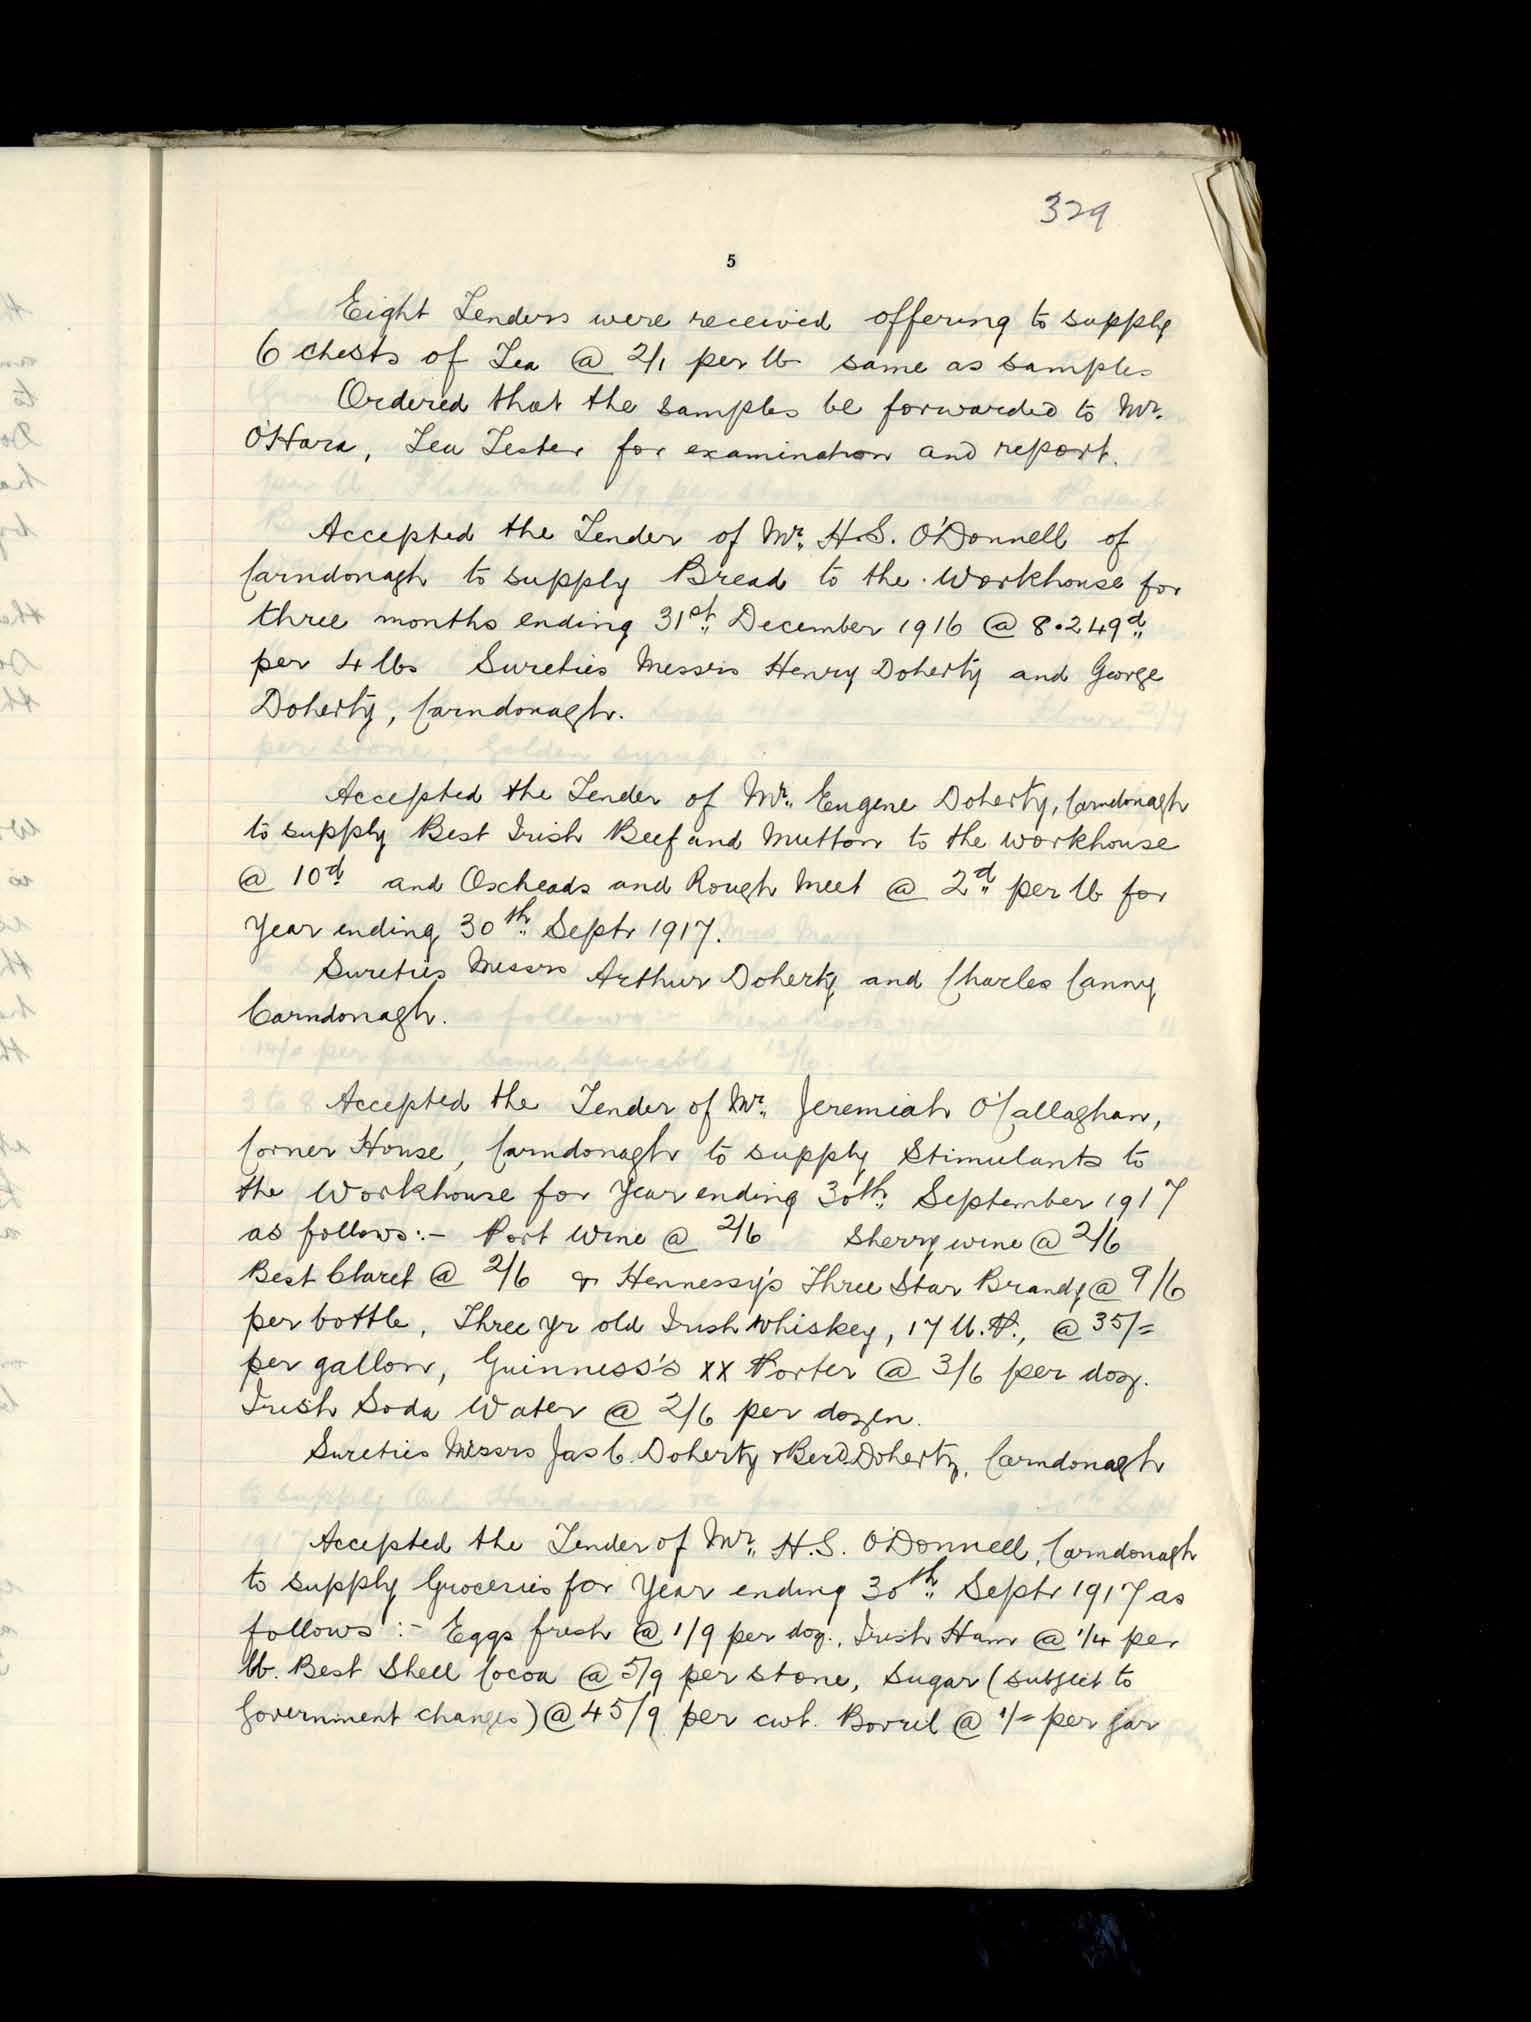 329
5
Eight Tenders were received offering to supply
6 chests of Tea @ 2/1 per lb same as samples
Ordered that the samples be forwarded to Mr.
O'Hara, Tea Tester for examination and report.
Accepted the Tender of Mr. H.S. O'Donnell of
Carndonagh to supply Bread to the Workhouse for
three months ending 31st December 1916 @ 8.249d
per 4 lbs Sureties Messrs Henry Doherty and George
Doherty, Carndonagh.
Accepted the Tender of Mr. Eugene Doherty, Carndonagh
to supply Best Irish Beef and Mutton to the workhouse
@ 10d and Oxheads and Rough Meet @ 2d per lb for
Year ending 30th Septr 1917.
Sureties Messrs Arthur Doherty and Charles Canny
Carndonagh.
Accepted the Tender of Mr. Jeremiah O'Callaghan,
Corner House, Carndonagh to supply Stimulants to
the Workhouse for Year ending 30th September 1917
as follows:- Port Wine @ 2/6 Sherry wine @ 2/6
Best Claret @ 2/6 & Hennessy's Three Star Brandy @ 9/6
per bottle, Three yr old Irish Whiskey, 17 U.P., @ 35/=
per gallon, Guinness's XX Porter @ 3/6 per doz.
Irish Soda Water @ 2/6 per dozen.
Sureties Messrs Jas C. Doherty & Berd Doherty, Carndonagh
Accepted the Tender of Mr. H.S. O'Donnell, Carndonagh
to supply Groceries for Year ending 30th Septr 1917 as
follows :- Eggs fresh @ 1/9 per doz., Irish Ham @ 1/4 per
lb. Best Shell Cocoa @ 5/9 per stone, Sugar (subject to
Government changes) @ 45/9 per cwt. Bovril @ 1/= per jar